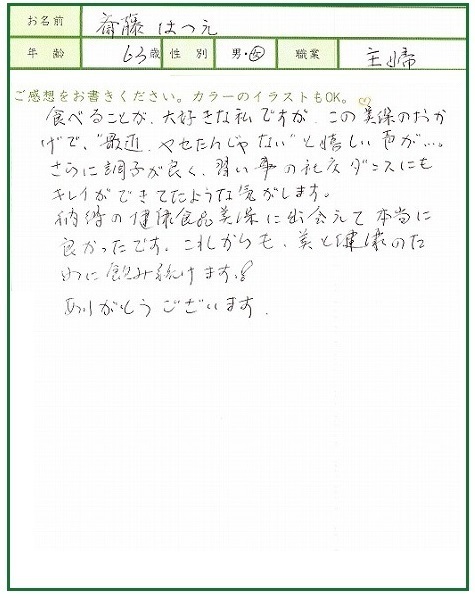 お名前 斎藤 はつえ
年齢 63歳 性別 男・女 職業 主婦
ご感想をお書きください。カラーのイラストもOK。
食べることが、大好きな私ですが、この美保のおか
げで、"最近、ヤセたんじゃない"と嬉しい声が…。
さらに調子が良く、習い事の社交ダンスにも
キレイができてたような気がします。
納得の健康食品美保に出会えて本当に
良かったです。これからも、美と健康のた
めに飲み続けます!
ありがとうございます。